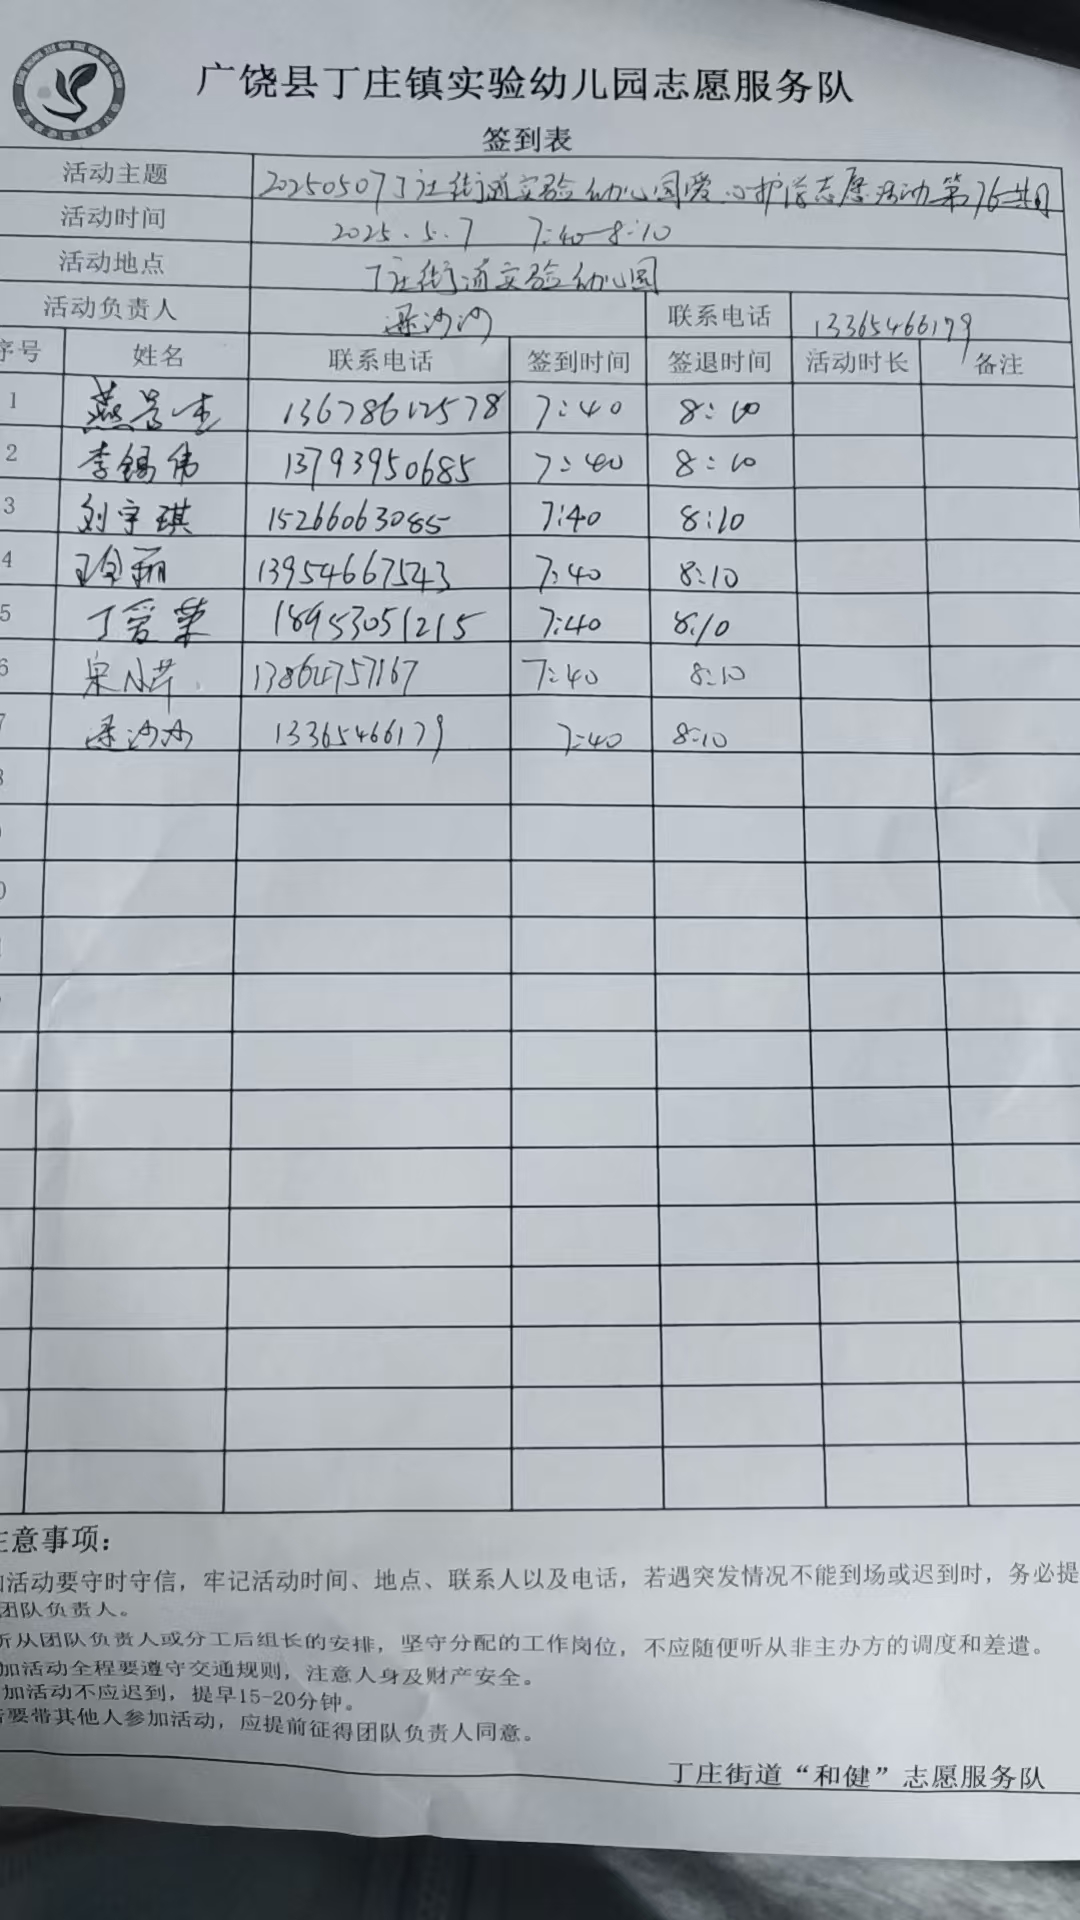 广饶县丁庄镇实验幼儿园志愿服务队
签到表
活动主题 20250507丁庄街道实验幼儿园爱心护学志愿活动第76期
活动时间 2025.5.7 7:40-8:10
活动地点 丁庄街道实验幼儿园
活动负责人 梁沙沙 联系电话 13365466179
序号 姓名 联系电话 签到时间 签退时间 活动时长 备注
1 燕 13678612578 7:40 8:10
2 李锡伟 13793950685 7:40 8:10
3 刘宇琪 15266063085 7:40 8:10
4 13954667543 7:40 8:10
5 丁爱荣 18953051215 7:40 8:10
6 宋小芹 7:40 8:10
7 梁沙沙 13365466179 7:40 8:10
注意事项：
加活动要守时守信，牢记活动时间、地点、联系人以及电话，若遇突发情况不能到场或迟到时，务必提
团队负责人。
听从团队负责人或分工后组长的安排，坚守分配的工作岗位，不应随便听从非主办方的调度和差遣。
加活动全程要遵守交通规则，注意人身及财产安全。
加活动不应迟到，提早15-20分钟。
要带其他人参加活动，应提前征得团队负责人同意。
丁庄街道“和健”志愿服务队